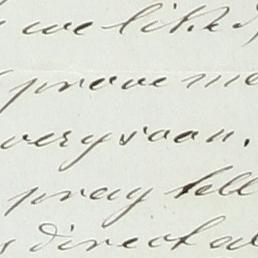 we liked,
prove me
very soon.
pray tell
direct al